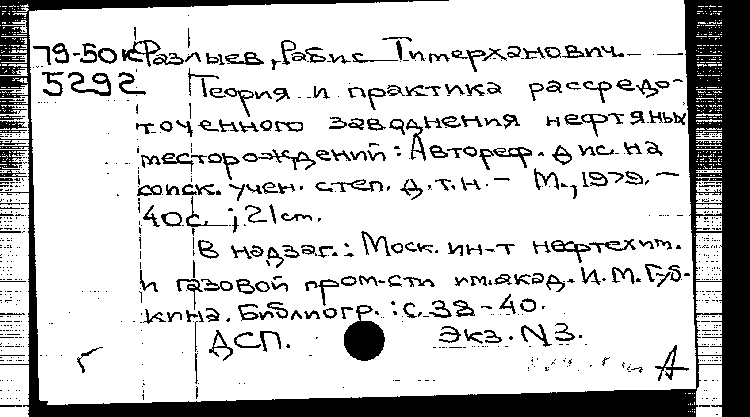 79-50к Фазлыев, Рабис Тимерханович.
5292 Теория и практика рассредо-
точенного заводнения нефтяных
месторождений: Автореф. дис. на
соиск. учен. степ. д.т.н. - М., 1979. -
40с. ; 21 cm.
В надзаг.: Моск. ин-т нефтехим.
и газовой пром-сти им. акад. И. М. Губ-
кина. Библиогр.: с. 38-40.
ДСП. Экз. N3.
г А